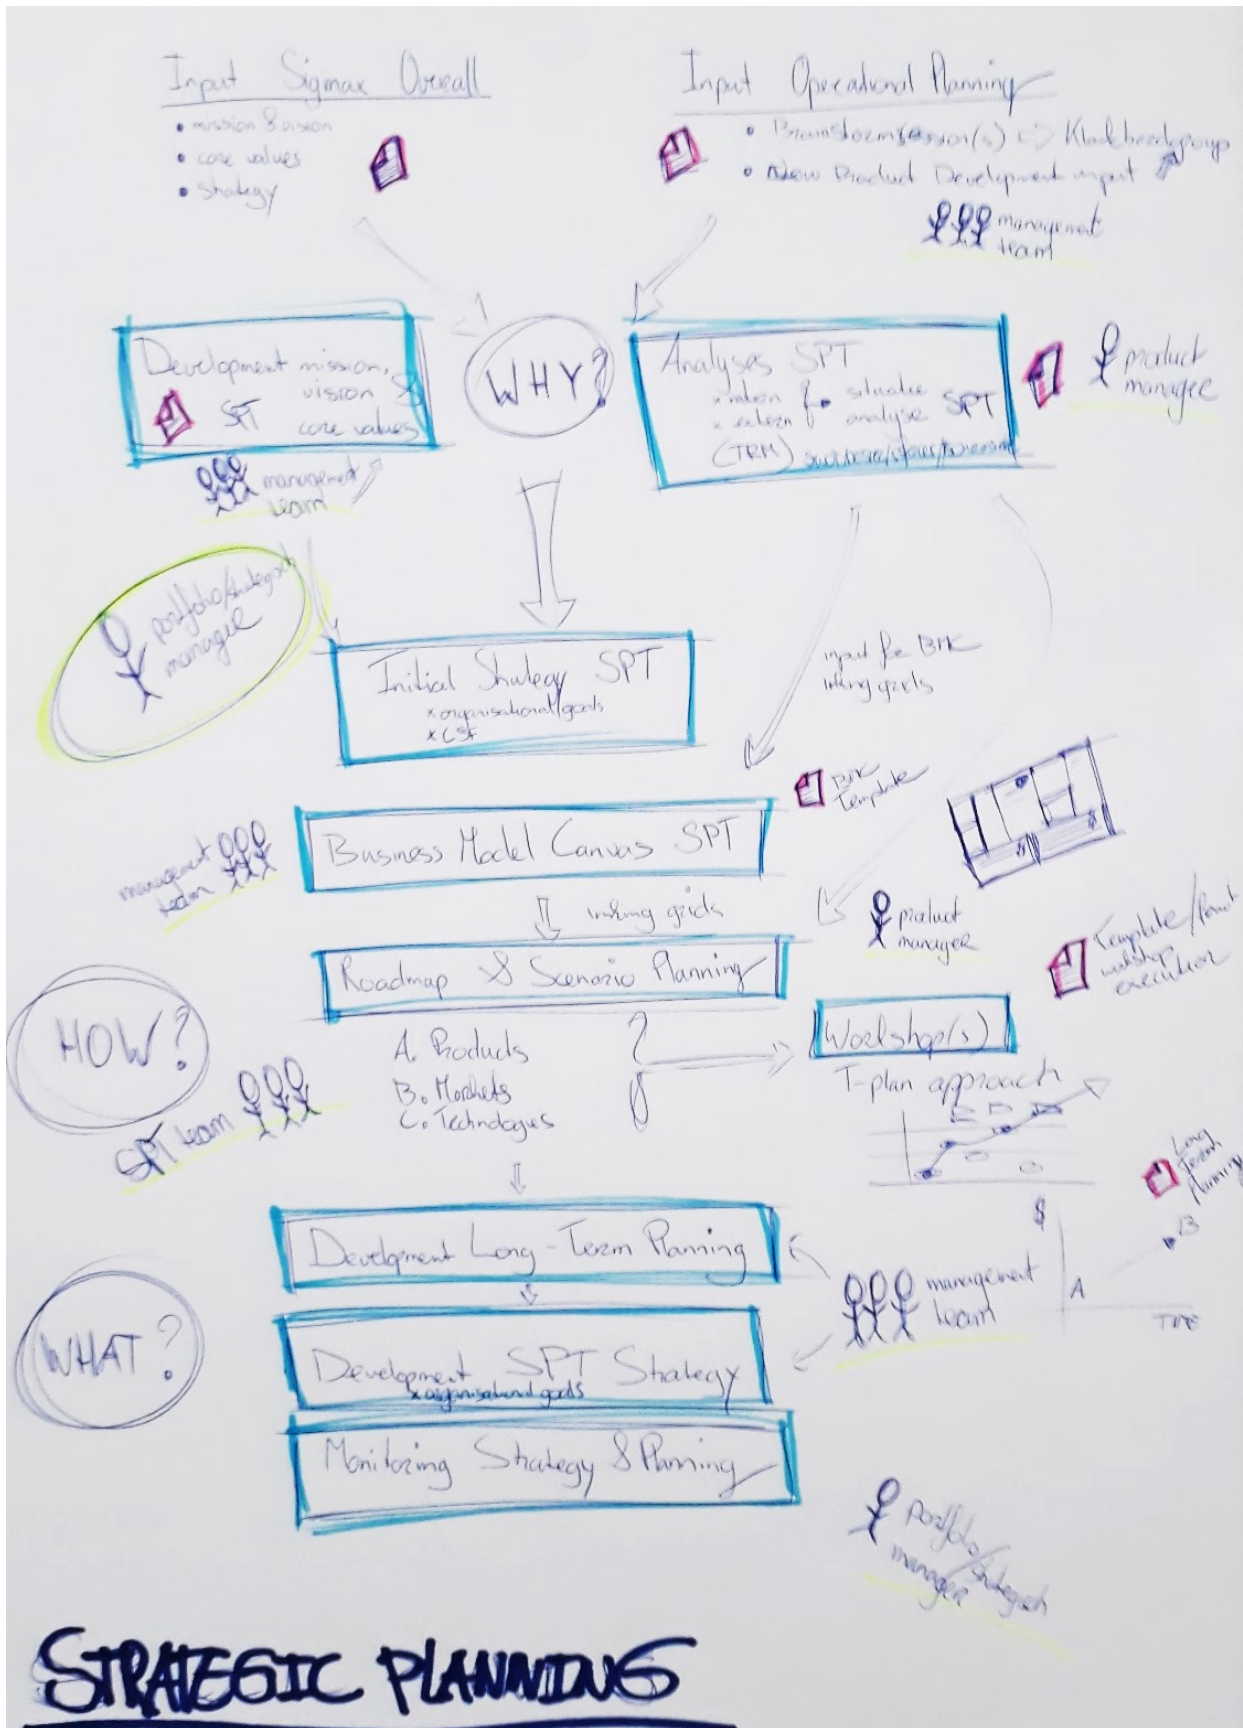 Input Sigmax Overall
• mission & vision
• core values
• strategy
Input Operational Planning
• Brainstormsession(s) => Klankbordgroup
• New Product Development input
management
team
Development mission,
vision &
SPT core values
management
team
WHY?
Analyses SPT
x intern situatie
x extern analyse SPT
(TRM)
product
manager
portfolio/strategisch
manager
Initial Strategy SPT
x organisational goals
x CSF
input for BMC
linking grids
BMC
Template
Business Model Canvas SPT
management
team
linking grids
product
manager
Roadmap & Scenario Planning
Template/Format
workshop
execution
HOW?
A. Products
B. Markets
C. Technologies
Workshop(s)
T-plan approach
SPT team
Long
Term
Planning
Development Long-Term Planning
$
B
A
TIME
management
team
WHAT?
Development SPT Strategy
x organisational goals
Monitoring Strategy & Planning
portfolio/strategisch
manager
STRATEGIC PLANNING